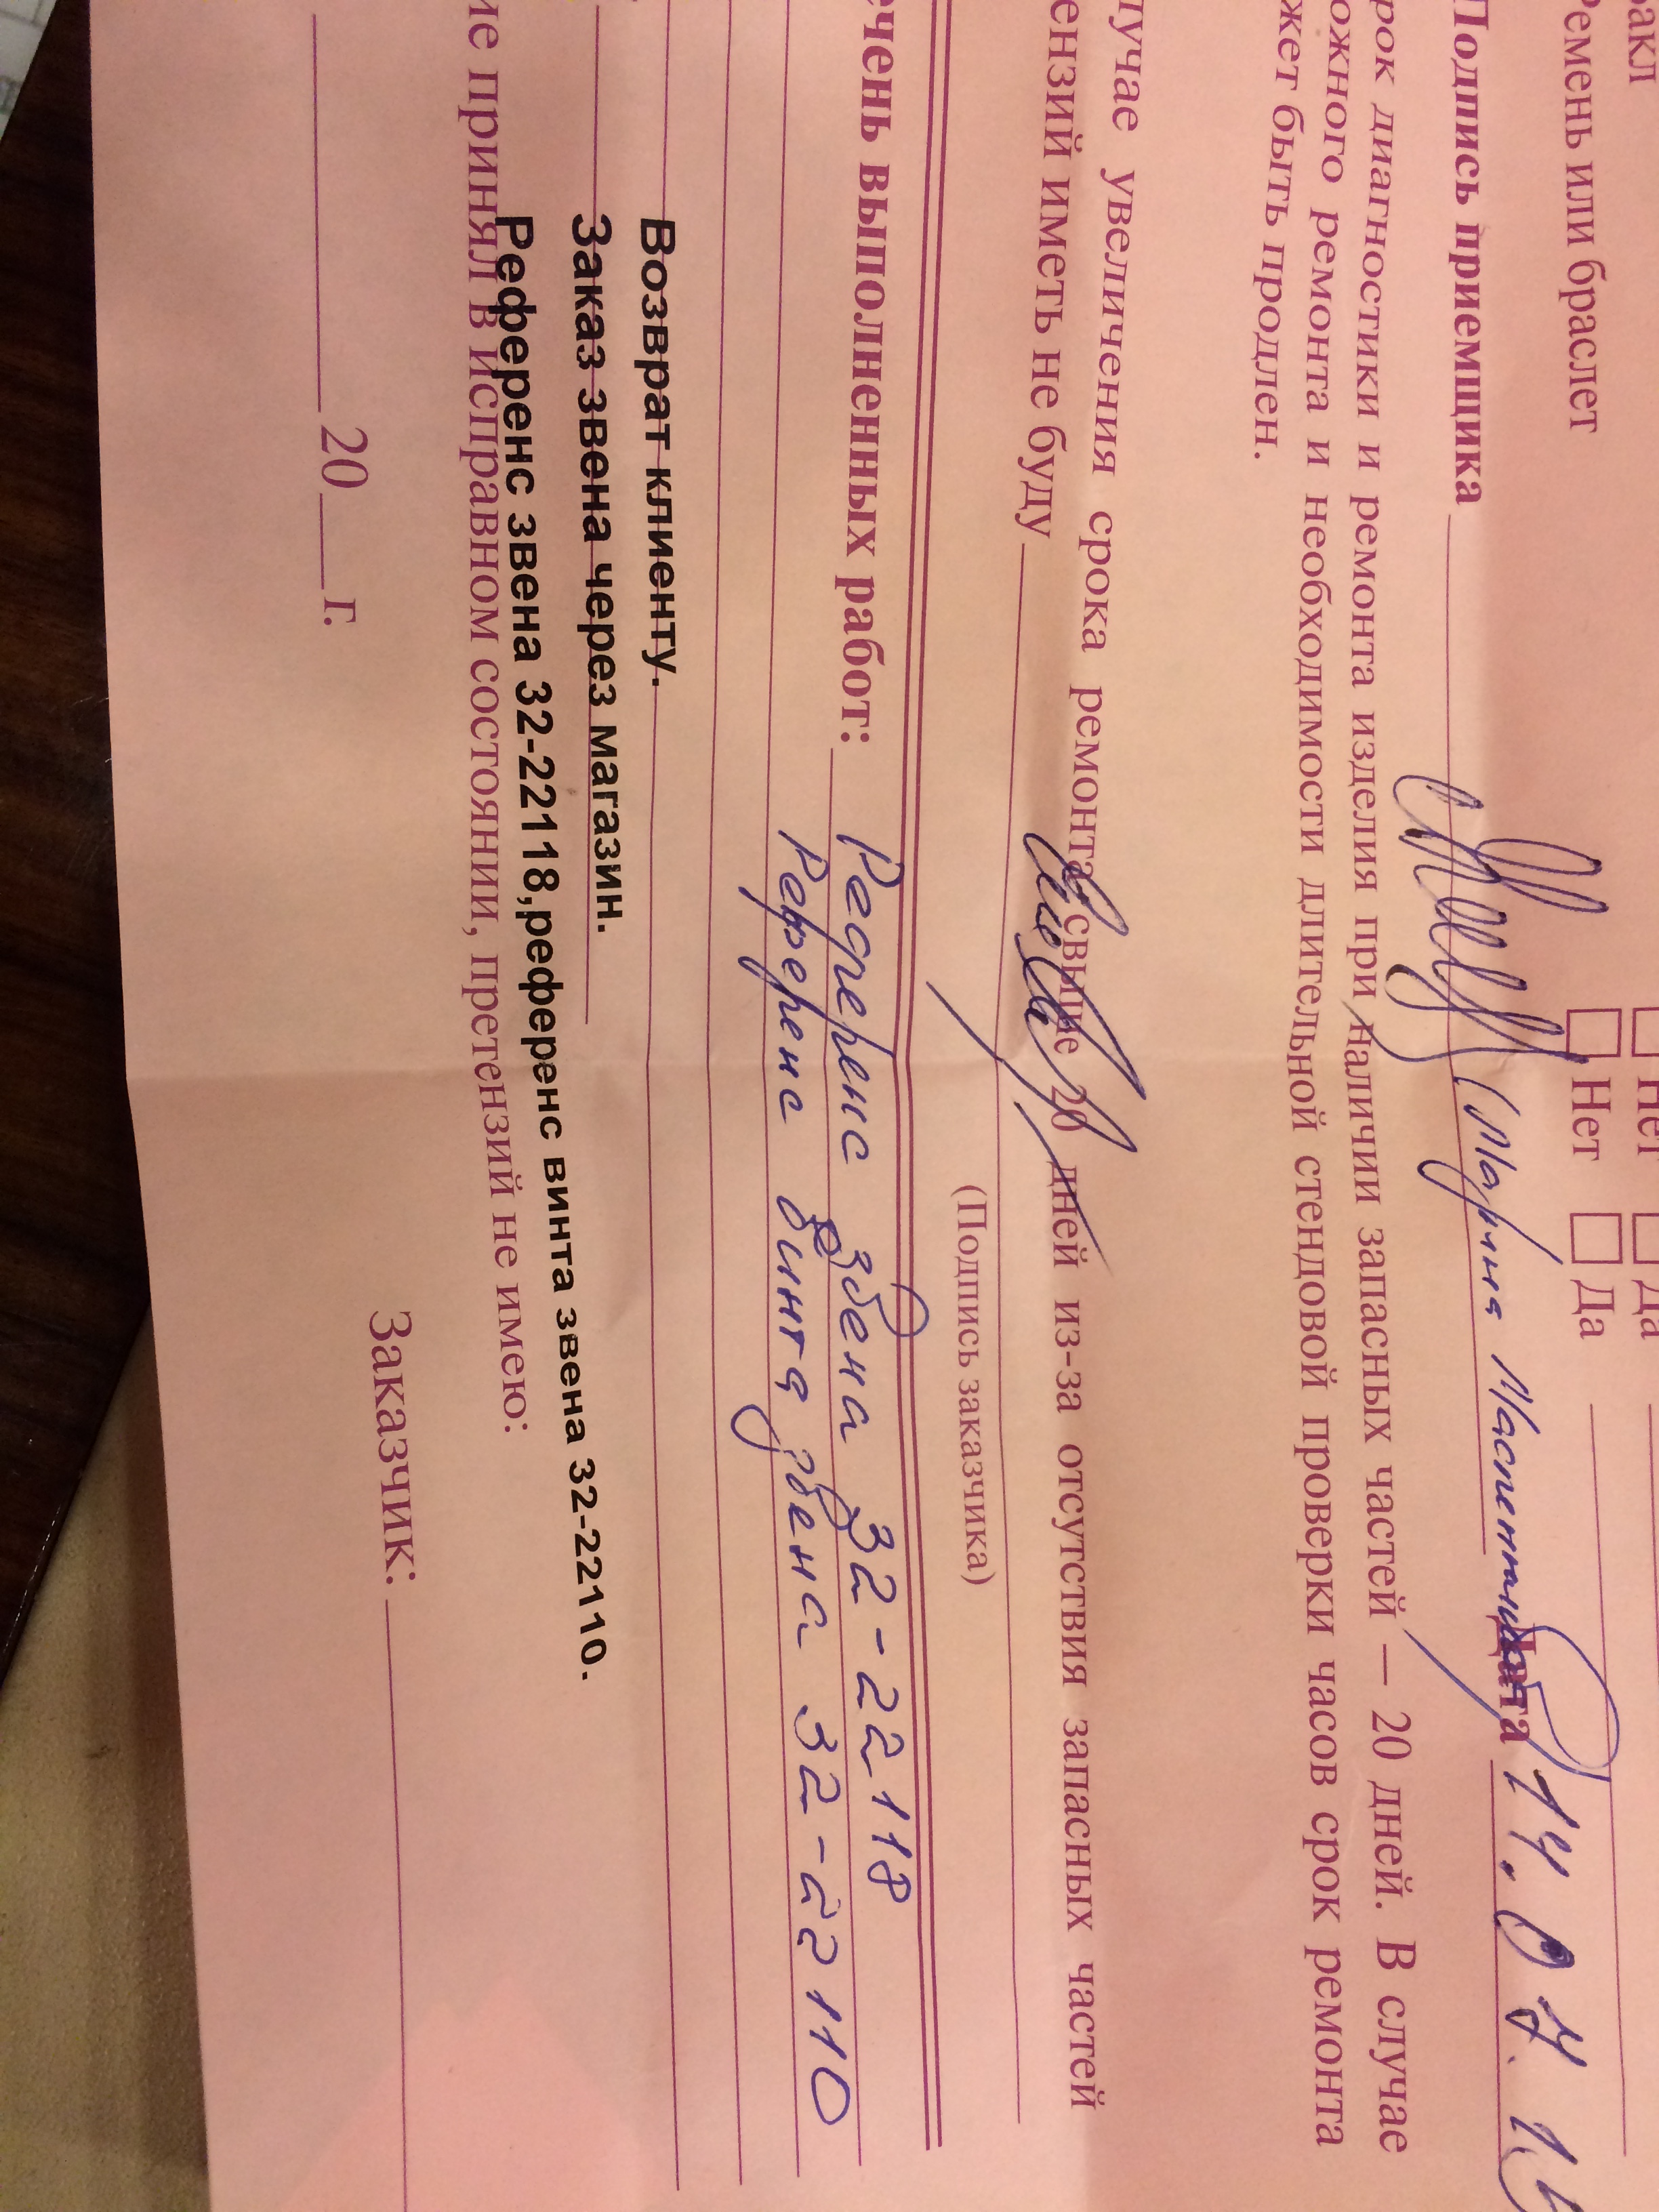 Нет Да
Ремень или браслет Нет Да
Подпись приемщика (Марина Дата 14.07.1
рок диагностики и ремонта изделия при наличии запасных частей — 20 дней. В случае
ожного ремонта и необходимости длительной стендовой проверки часов срок ремонта
жет быть продлен.
лучае увеличения срока ремонта свыше 20 дней из-за отсутствия запасных частей
ензий иметь не буду
(Подпись заказчика)
ечень выполненных работ: Референс звена 32-22118
Референс винта звена 32-22110
Возврат клиенту.
Заказ звена через магазин.
Референс звена 32-22118,референс винта звена 32-22110.
ие принял в исправном состоянии, претензий не имею:
20 г. Заказчик: